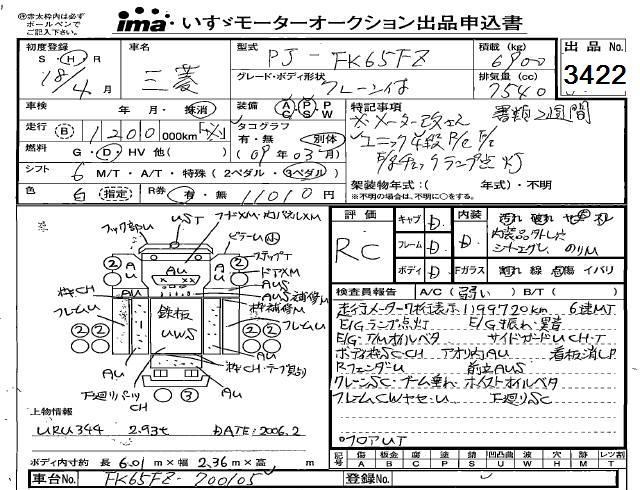 赤太枠内は必ず
ボールペンで
ご記入下さい。
ima いすゞモーターオークション出品申込書
初度登録 車名 型式 PJ-FK65FZ 積載(kg) 6900 出品No.
S・H・R 18/4月 三菱 グレード・ボディ形状 クレーン付 排気量(cc) 7540 3422
車検 年・月・抹消 装備 A/C P/S P/W 特記事項 書類2週間
走行 B 1200 000km タコグラフ 有・無 別体 ※メーター改ざん
燃料 G・D・HV 他( ) (09年03月) ユニック4段 R/C F/J
シフト 6 M/T・A/T・特殊(2ペダル・3ペダル) E/gチェックランプ点灯
色 白 指定 R券 有・無 11010円 架装物年式:( 年式)・不明
※不明の場合は、不明に○をする。
評価 RC キャブ D 内装 D
フレーム D 内装品外れ
ボディ D Fガラス 割れ 線 点傷 イバリ
検査員報告 A/C(弱い) B/T( )
走行メーター7桁表示 1199720km 6速MT
E/Gランプ点灯 E/G振れ・異音
E/G・T/Mオイルベタ サイドガードU CH・T
ボデー枠SC・CH アオリ内AU 看板消しP
RフェンダーU 前立AUS
クレーンSC・ブーム垂れ・ホイストオイルベタ
フレームCWヤセ・U 下廻りSC
フロアUT
フック部U UST
ピラーU
ステップT
ドアXM
AU
AUS
AUS補修M
枠補修M
枠キCH
フレームU
鉄板
UWS
フレームU
AU
下廻りパーツ
CH
AU
上物情報
URU344 2.93t DATE:2006.2
ボディ内寸約 長 6.01m×幅 2.36m×高 m
記号 A傷 B板金 C腐 P塗 S錆 U凸凹曲 W波 H穴 M跡 Tレツ割
車台No. FK65FZ-700105 登録No.